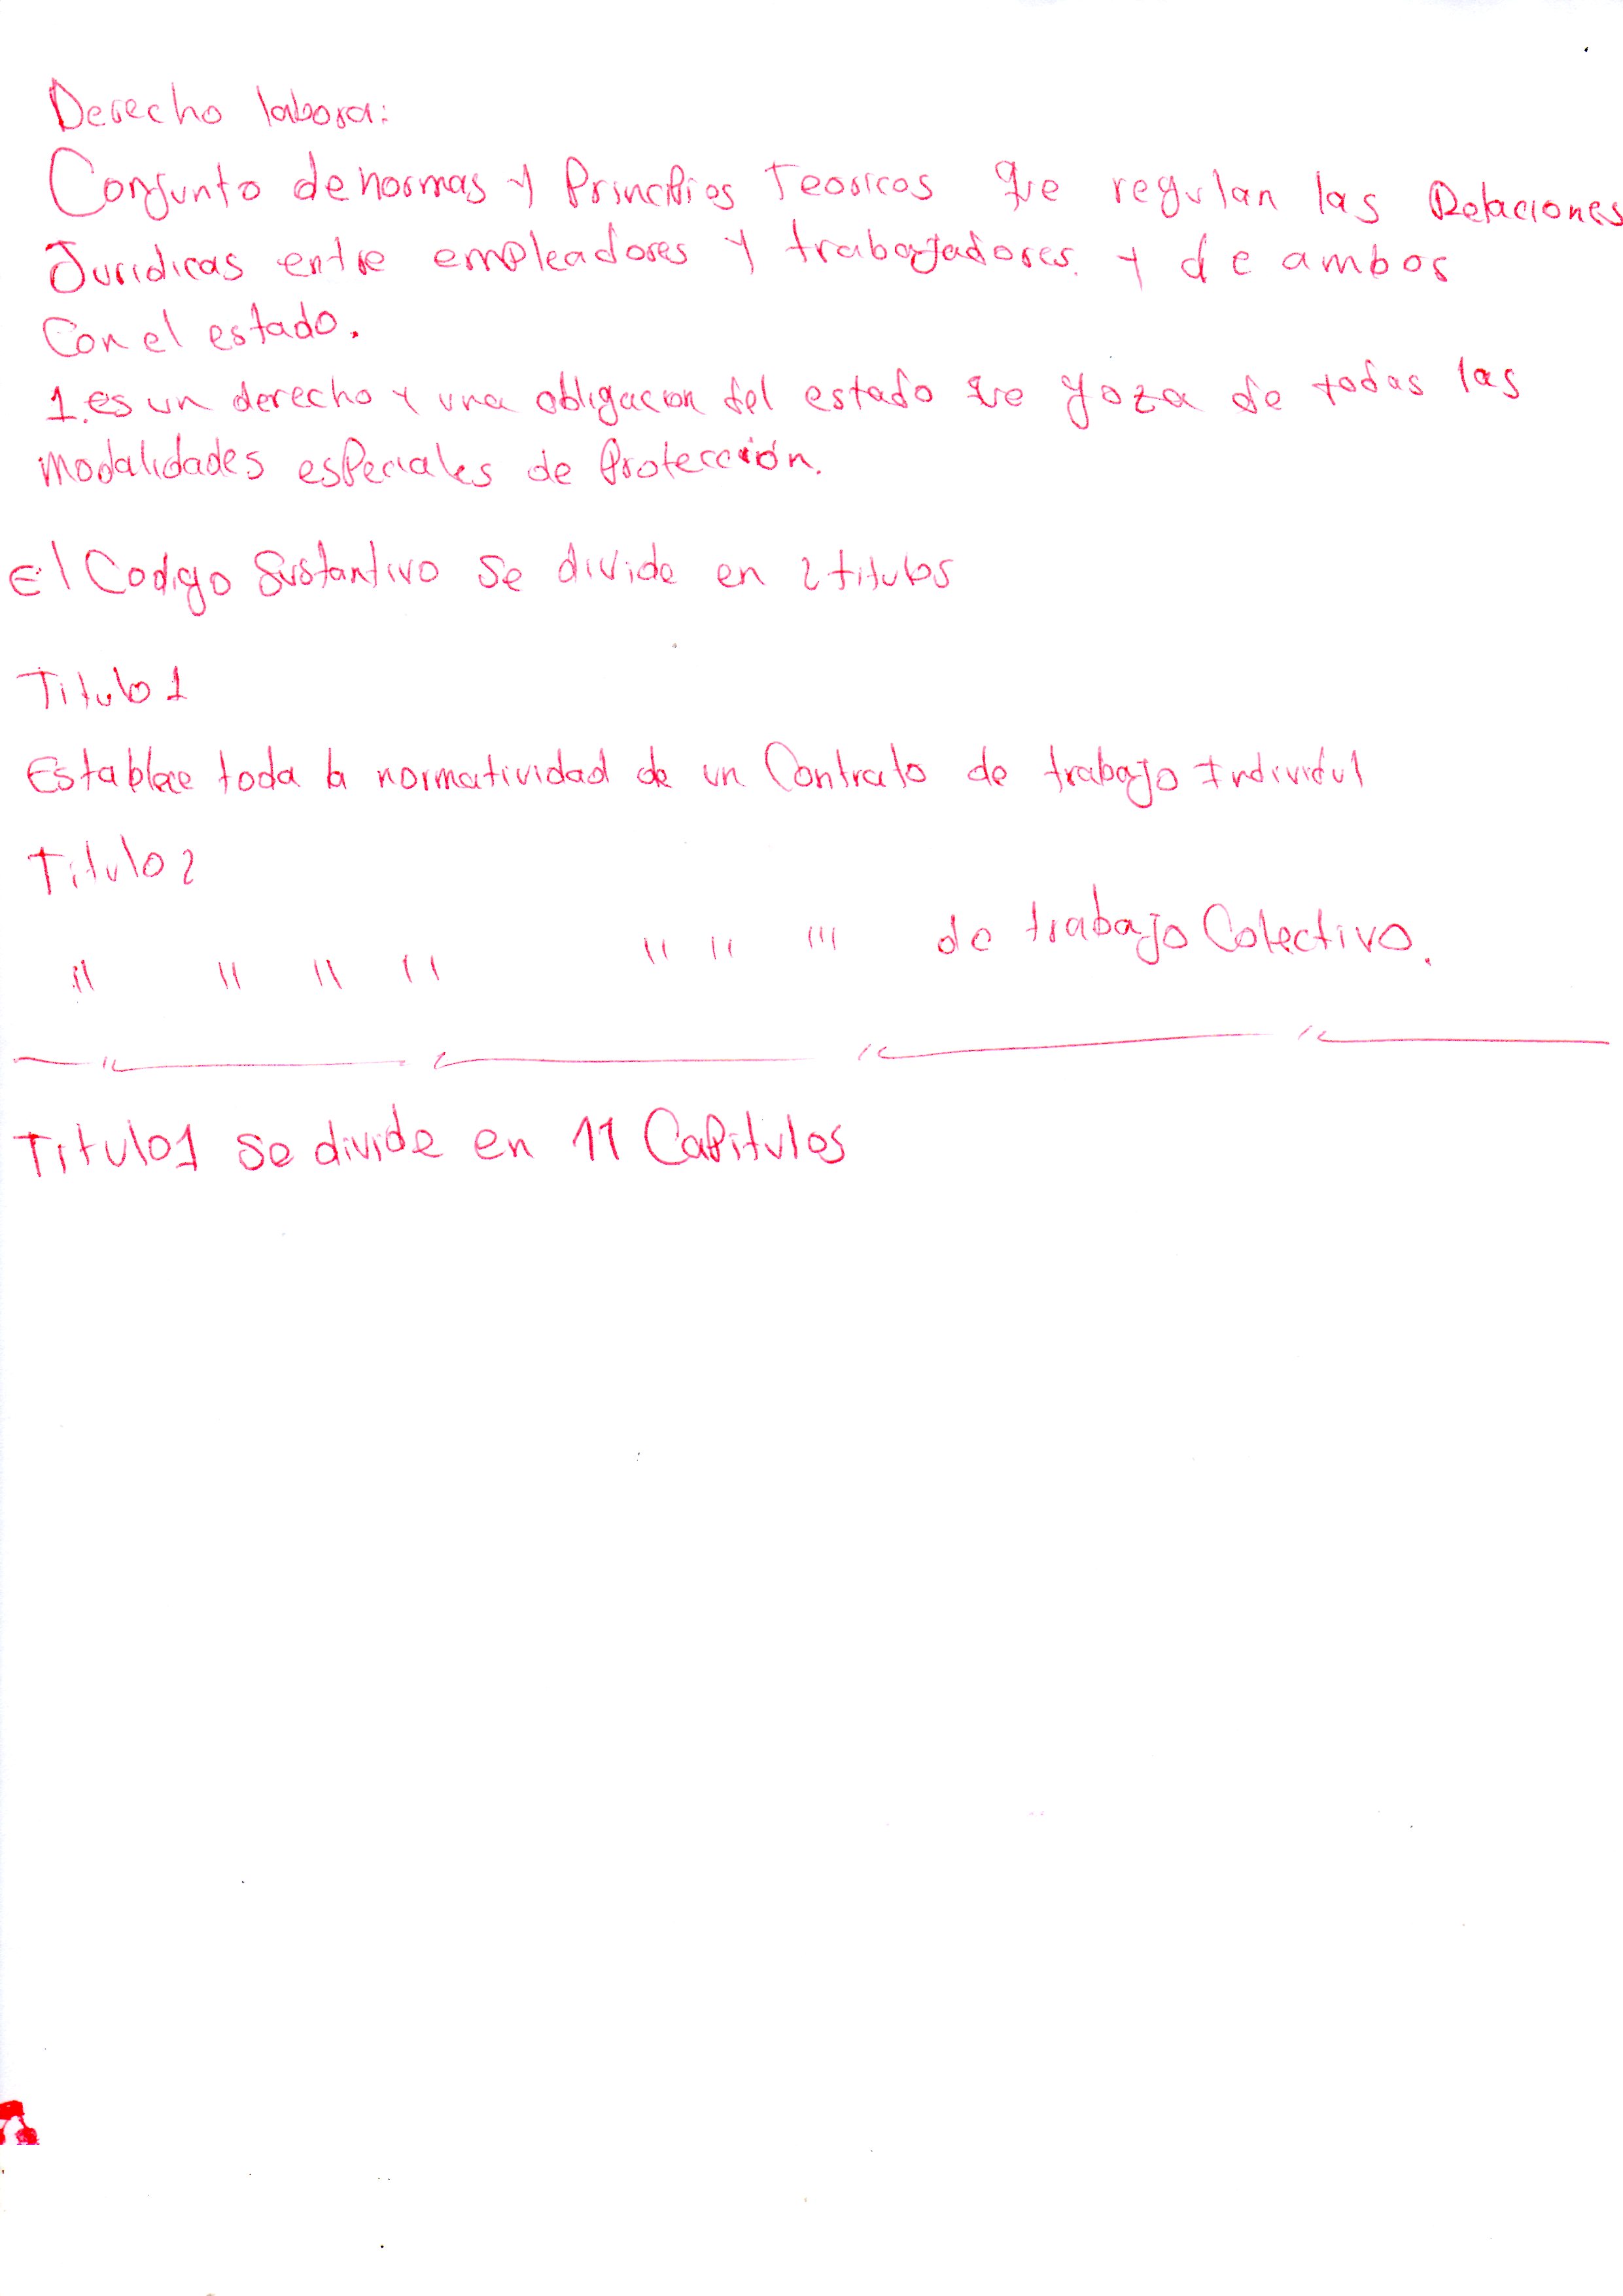 Derecho labora:
Conjunto de normas y Principios Teoricos que regulan las Relaciones
Juridicas entre empleadores y trabajadores. y de ambos
Con el estado.
1. es un derecho y una obligacion del estado que goza de todas las
Modalidades especiales de Protección.
El Codigo Sustantivo Se divide en 2 titulos
Titulo 1
Establece toda la normatividad de un Contrato de trabajo Individul
Titulo 2
" " " " " " "' de trabajo Colectivo.
Titulo 1 se divide en 11 Capitulos